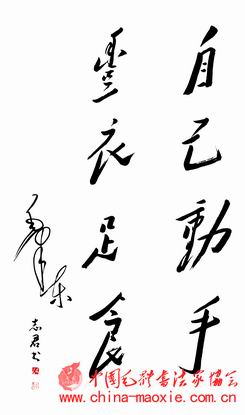 自己動手
豐衣足食
毛澤东
志君书
中国毛体书法家协会
www.china-maoxie.com.cn